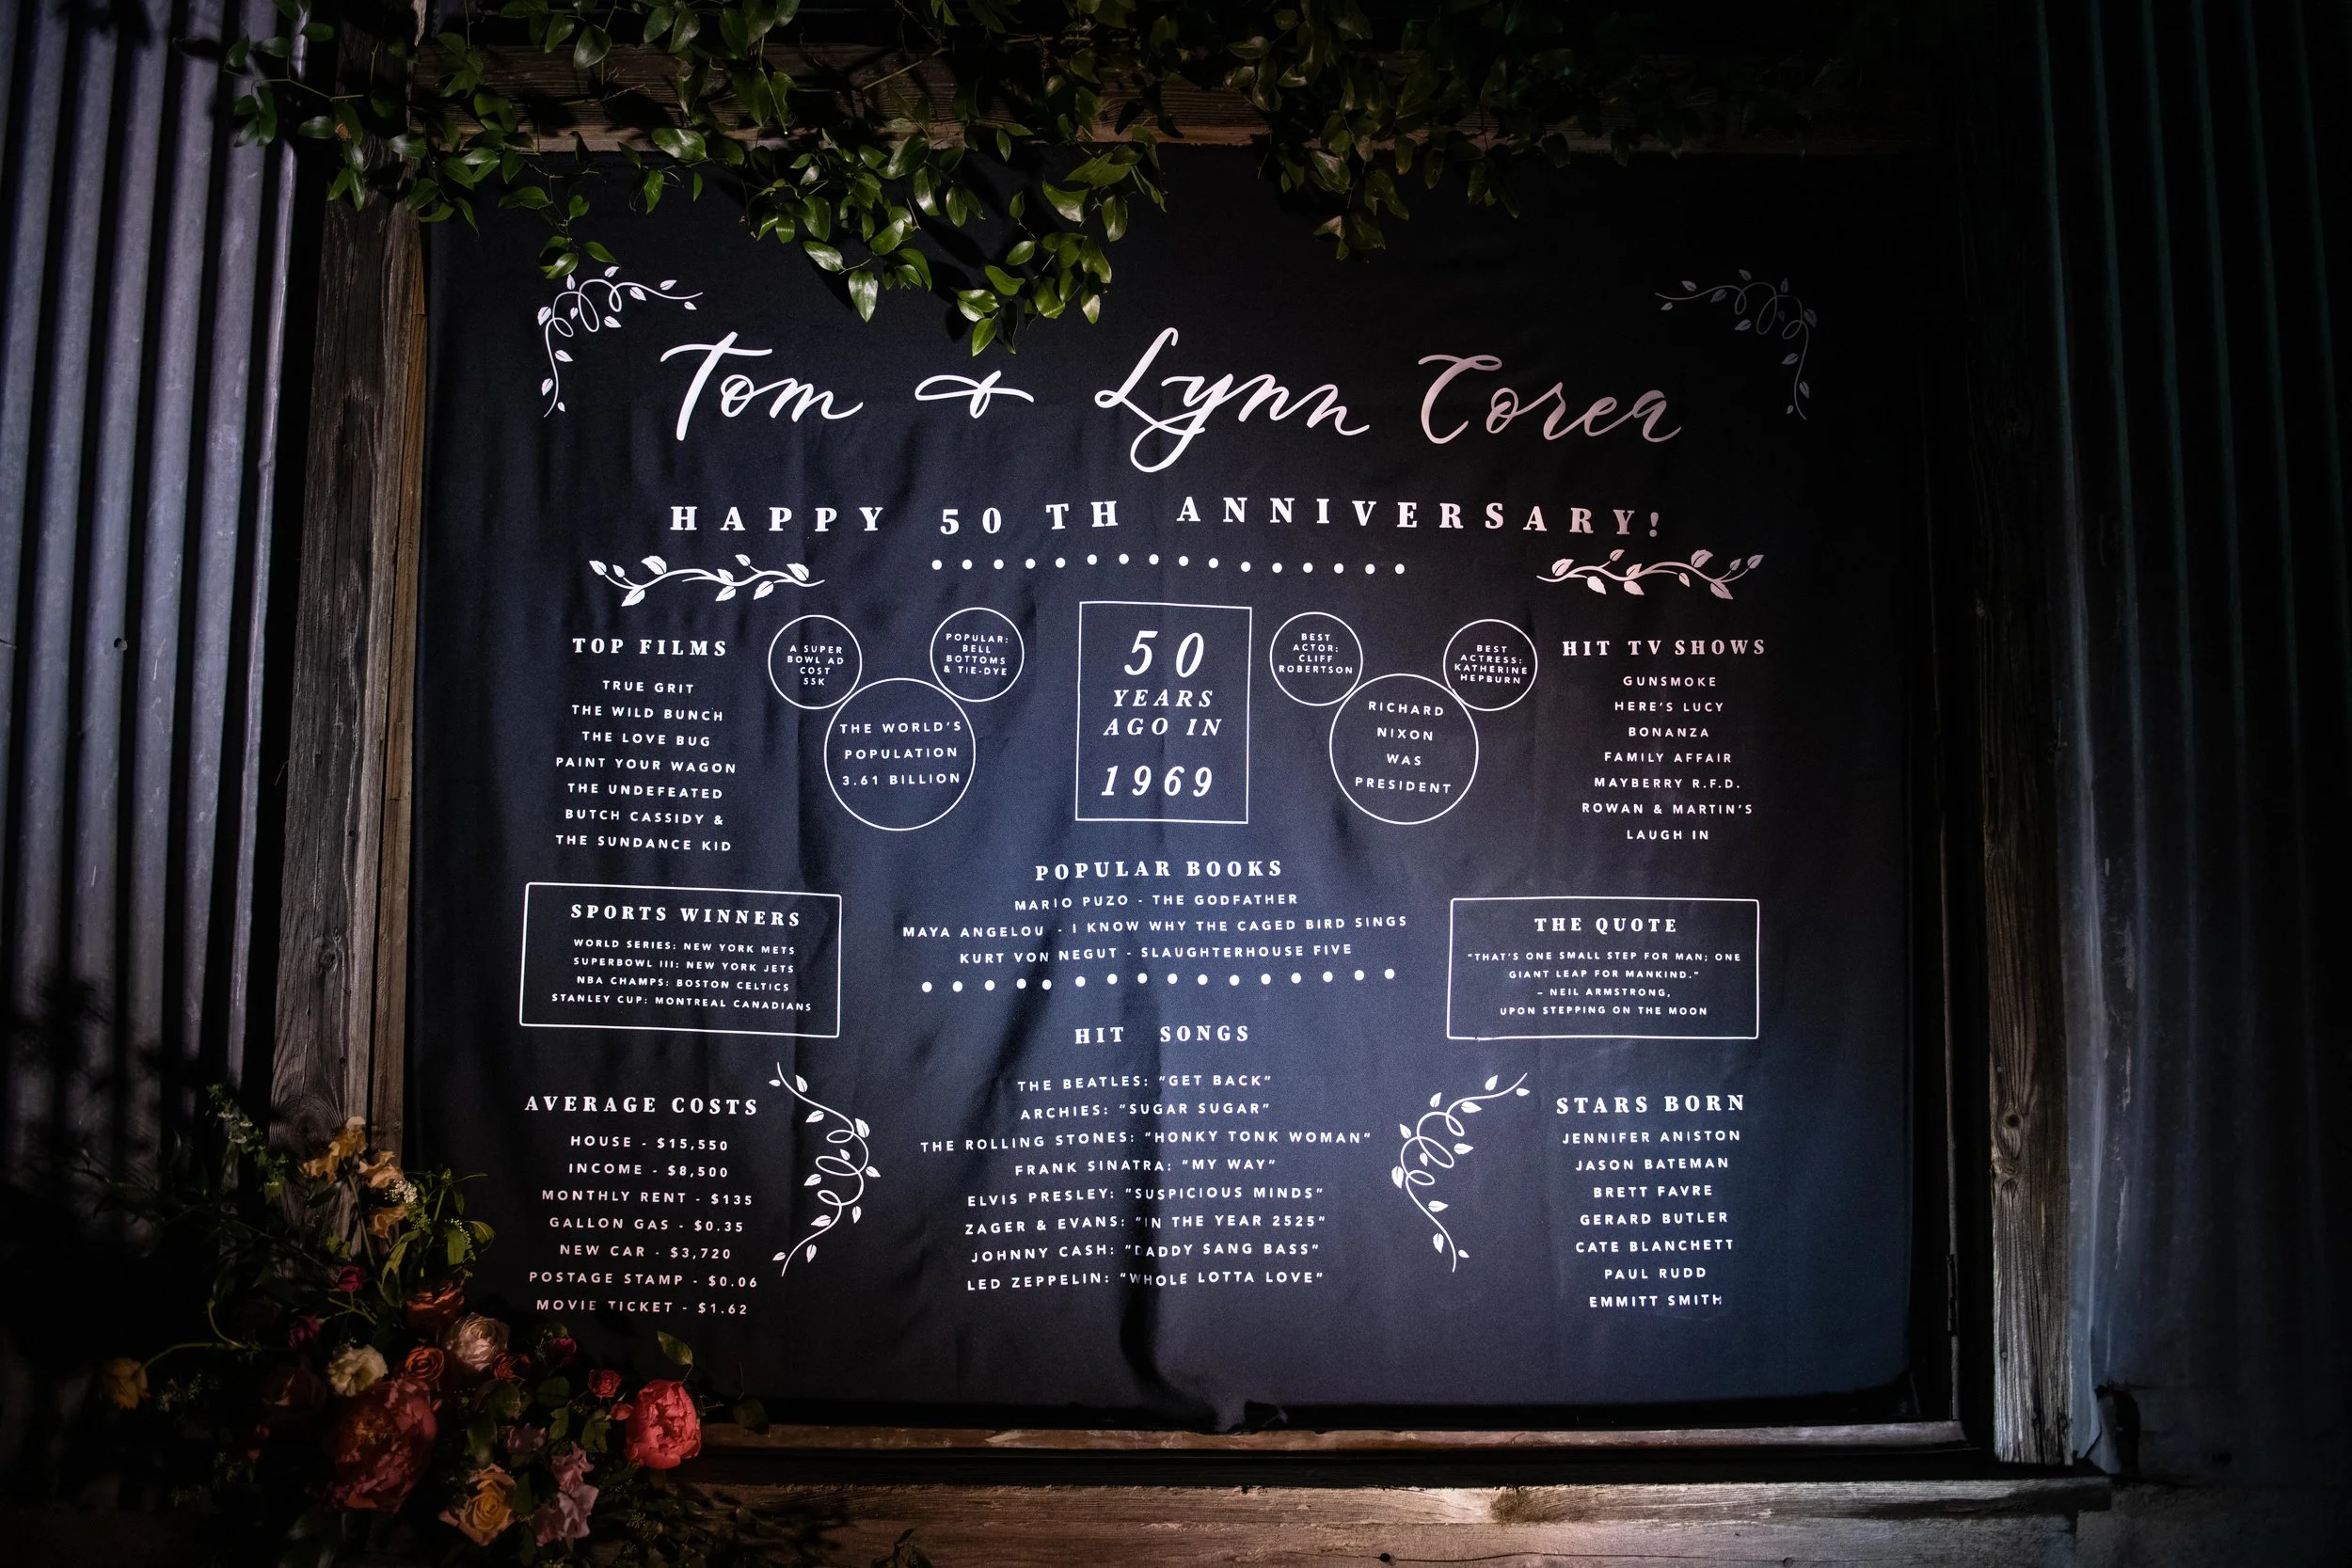 Tom & Lynn Corea
HAPPY 50 TH ANNIVERSARY!
TOP FILMS
TRUE GRIT
THE WILD BUNCH
THE LOVE BUG
PAINT YOUR WAGON
THE UNDEFEATED
BUTCH CASSIDY &
THE SUNDANCE KID
A SUPER
BOWL AD
COST
55K
POPULAR:
BELL
BOTTOMS
& TIE-DYE
THE WORLD'S
POPULATION
3.61 BILLION
50
YEARS
AGO IN
1969
BEST
ACTOR:
CLIFF
ROBERTSON
BEST
ACTRESS:
KATHERINE
HEPBURN
RICHARD
NIXON
WAS
PRESIDENT
HIT TV SHOWS
GUNSMOKE
HERE'S LUCY
BONANZA
FAMILY AFFAIR
MAYBERRY R.F.D.
ROWAN & MARTIN'S
LAUGH IN
SPORTS WINNERS
WORLD SERIES: NEW YORK METS
SUPERBOWL III: NEW YORK JETS
NBA CHAMPS: BOSTON CELTICS
STANLEY CUP: MONTREAL CANADIANS
POPULAR BOOKS
MARIO PUZO - THE GODFATHER
MAYA ANGELOU - I KNOW WHY THE CAGED BIRD SINGS
KURT VON NEGUT - SLAUGHTERHOUSE FIVE
THE QUOTE
"THAT'S ONE SMALL STEP FOR MAN; ONE
GIANT LEAP FOR MANKIND."
– NEIL ARMSTRONG,
UPON STEPPING ON THE MOON
AVERAGE COSTS
HOUSE - $15,550
INCOME - $8,500
MONTHLY RENT - $135
GALLON GAS - $0.35
NEW CAR - $3,720
POSTAGE STAMP - $0.06
MOVIE TICKET - $1.62
HIT SONGS
THE BEATLES: "GET BACK"
ARCHIES: "SUGAR SUGAR"
THE ROLLING STONES: "HONKY TONK WOMAN"
FRANK SINATRA: "MY WAY"
ELVIS PRESLEY: "SUSPICIOUS MINDS"
ZAGER & EVANS: "IN THE YEAR 2525"
JOHNNY CASH: "DADDY SANG BASS"
LED ZEPPELIN: "WHOLE LOTTA LOVE"
STARS BORN
JENNIFER ANISTON
JASON BATEMAN
BRETT FAVRE
GERARD BUTLER
CATE BLANCHETT
PAUL RUDD
EMMITT SMITH